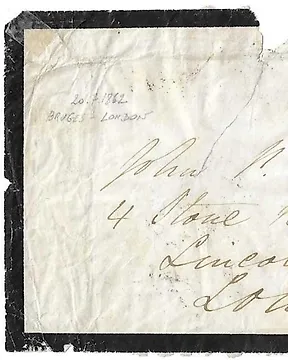 20.7.1862
BRUGES - LONDON
John N.
4 Stone
Lincol
Lon